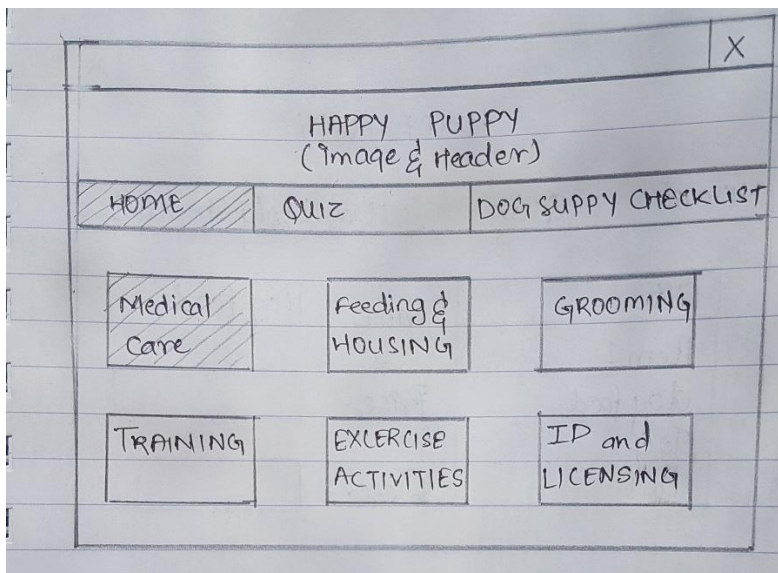 X
HAPPY PUPPY
(Image & Header)
HOME QUIZ DOG SUPPY CHECKLIST
Medical Care
Feeding & HOUSING
GROOMING
TRAINING
EXCERCISE ACTIVITIES
ID and LICENSING